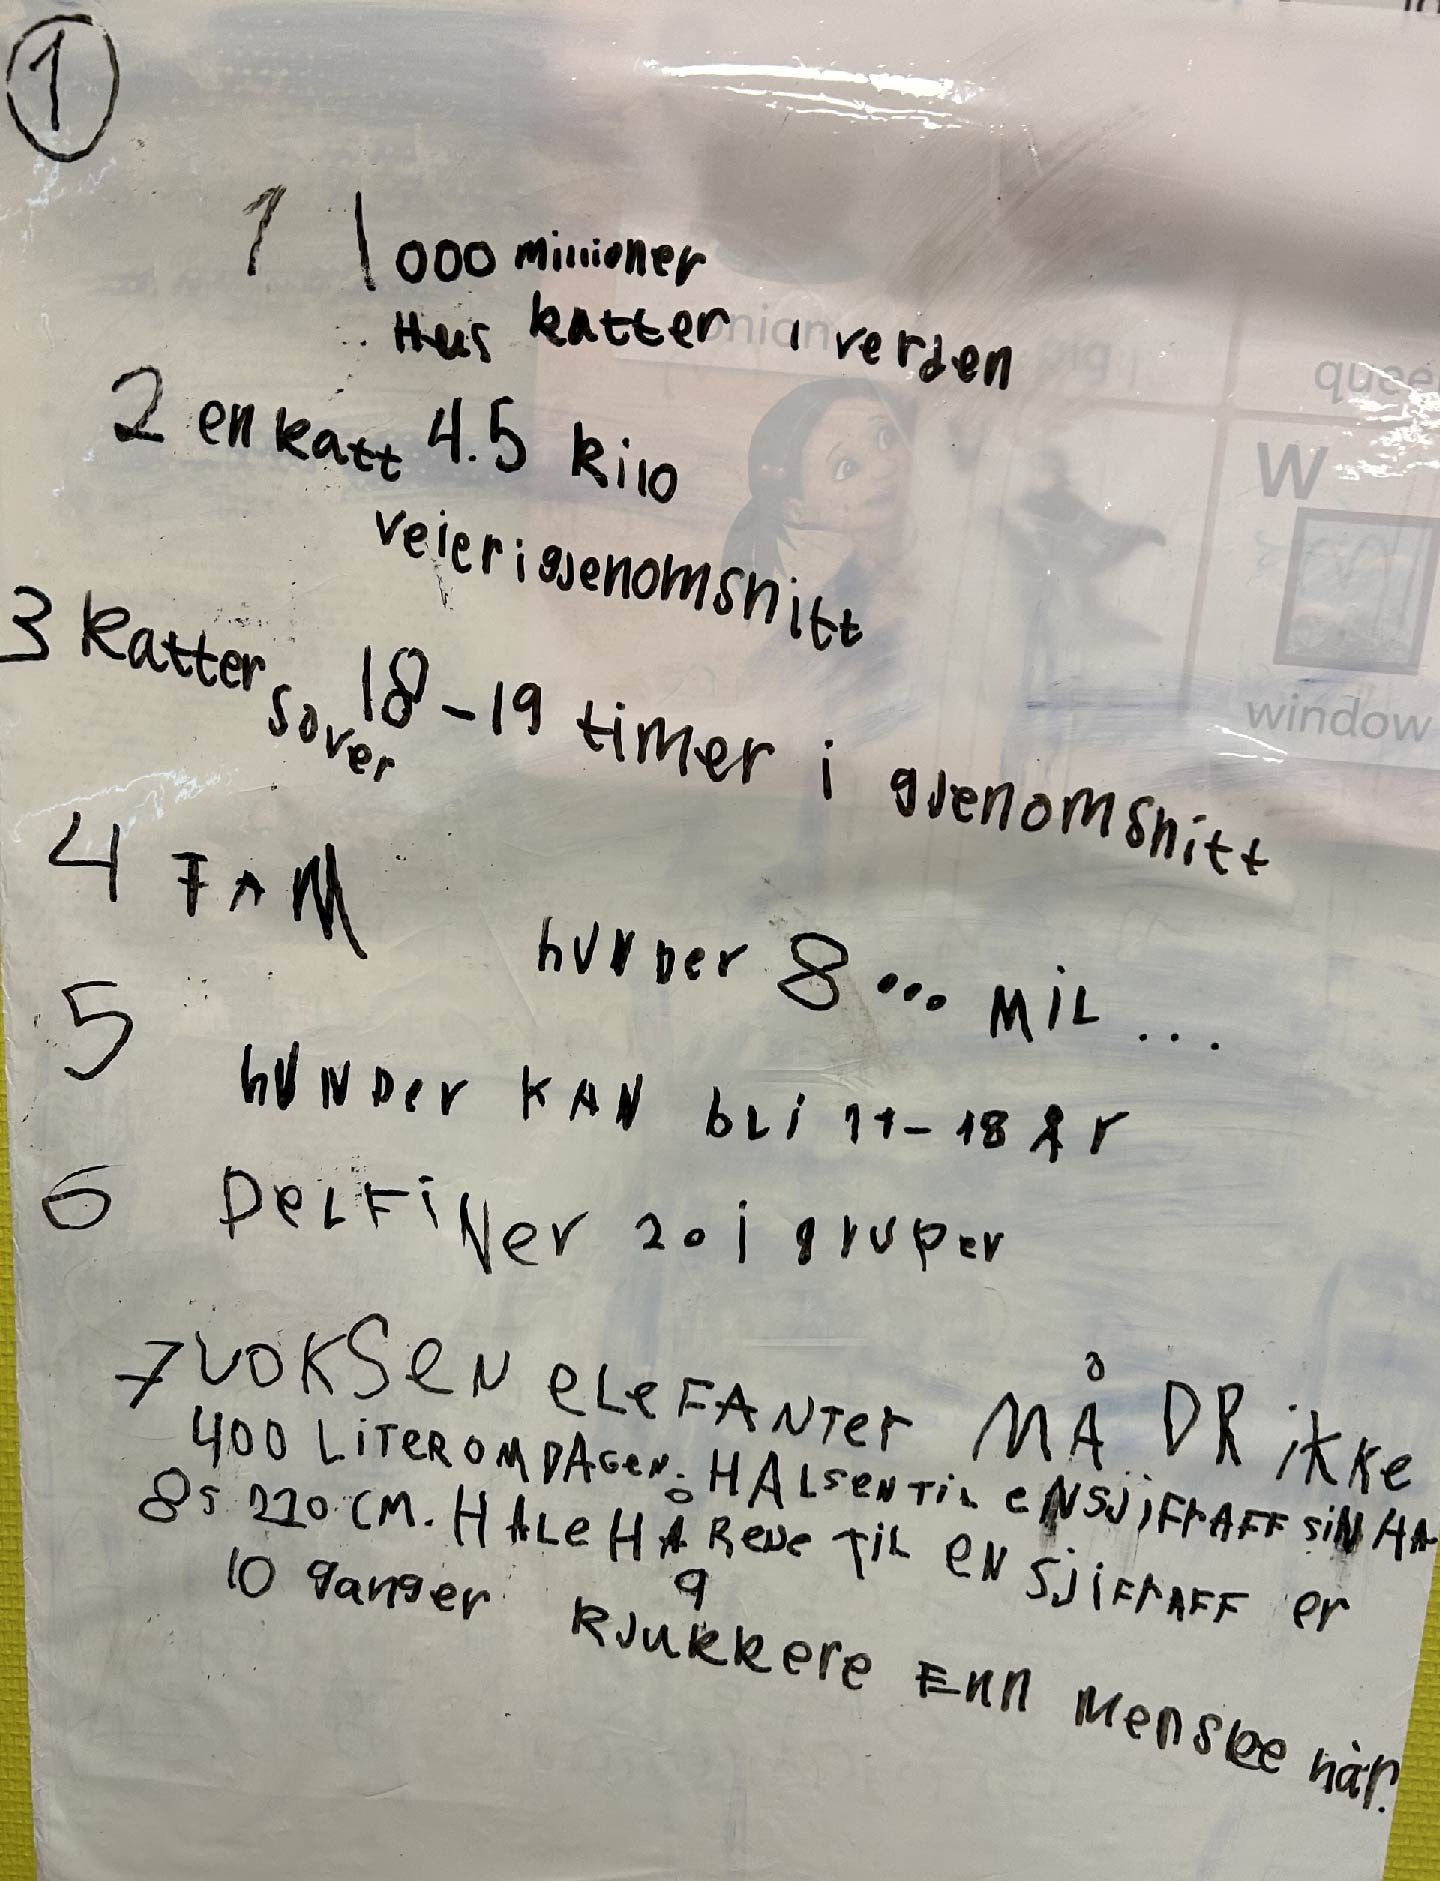 1
1 1000 millioner
Hus katter i verden
2 en katt 4.5 kilo
veier i gjenomsnitt
3 katter sover 18-19 timer i gjenomsnitt
4 FAM hunDer 8... MiL...
5 hUNDer KAN bLi 11-18 År
6 DeLFiNer 20 i gruper
7 VOKSeN eLeFANTer MÅ DRikke
400 LiTER OM DAGeN. HALSeN TiL eN SJiFrAFF siN HA
8 s 220 CM. HALe HÅRene TiL eN SJiFrAFF er
10 ganger kjukkere Enn Menske hår.
9
onian
ig
quee
W
window